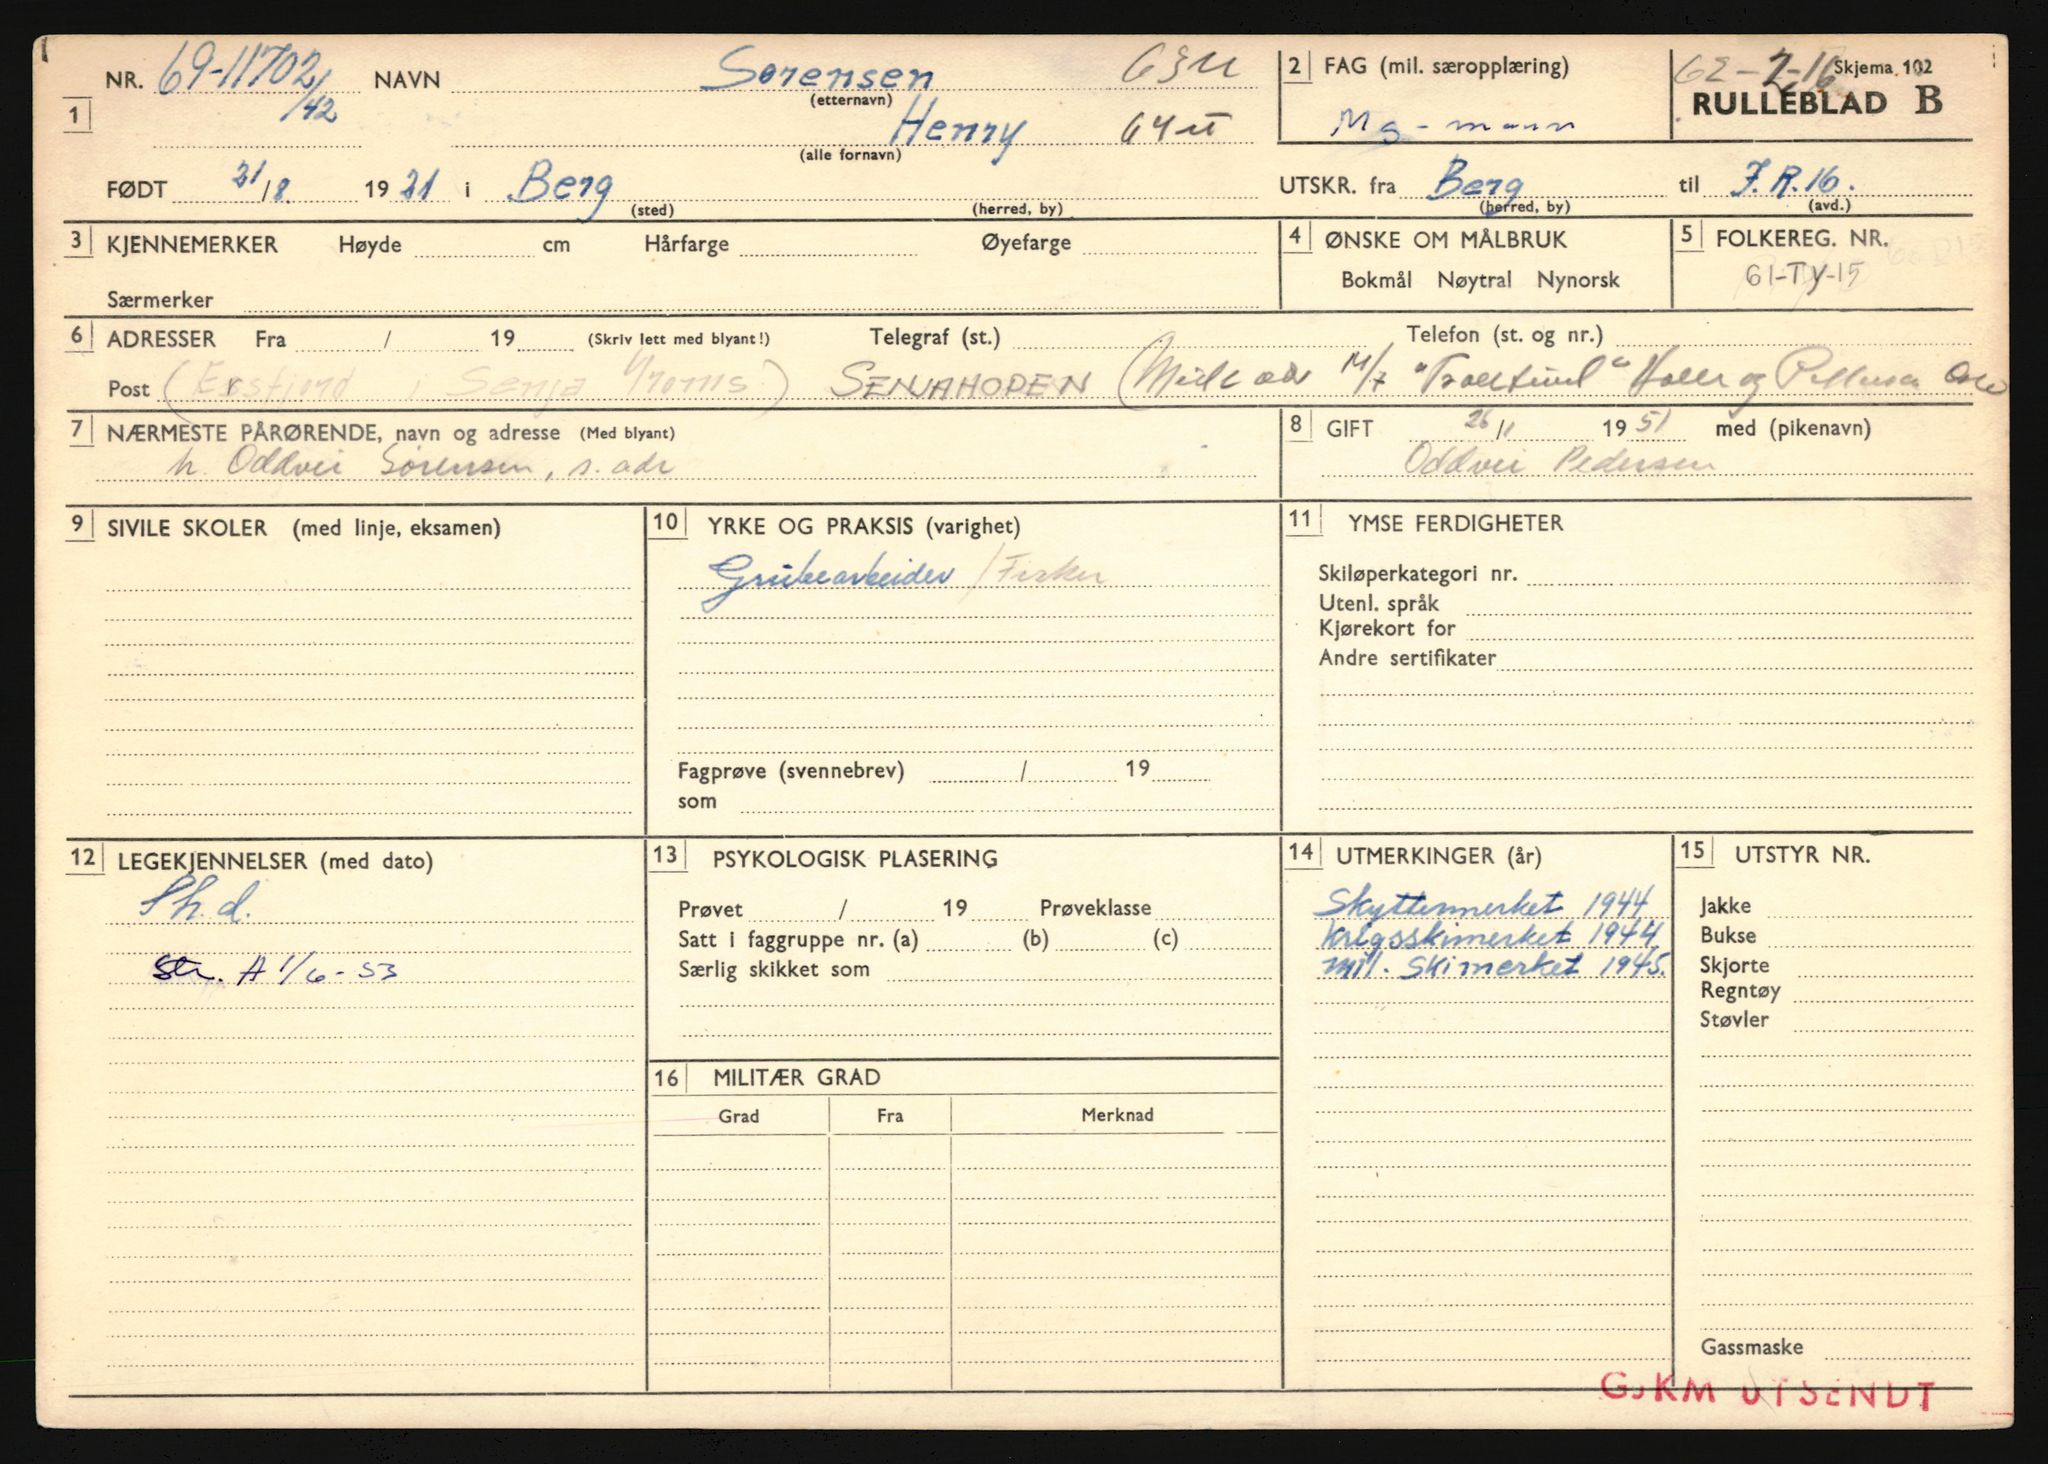 NR. 69-11702/42 NAVN Sørensen 63 U
1 (etternavn)
Henry 64
(alle fornavn)
FØDT 21/8 1921 i Berg
(sted) (herred, by)
2 FAG (mil. særopplæring)
Mg-mann
62-2-16 Skjema 102
RULLEBLAD B
UTSKR. fra Berg til I.R.16.
(herred, by) (avd.)
3 KJENNEMERKER Høyde cm Hårfarge Øyefarge
Særmerker
4 ØNSKE OM MÅLBRUK
Bokmål Nøytral Nynorsk
5 FOLKEREG. NR.
61-Ty-15
6 ADRESSER Fra / 19 (Skriv lett med blyant!) Telegraf (st.) Telefon (st. og nr.)
Post (Ersfjord i Senja Troms) SENJAHOPEN (Midl adr M/T "Trolltind" og Oslo
7 NÆRMESTE PÅRØRENDE, navn og adresse (Med blyant)
h. Oddvei Sørensen, s. adr
8 GIFT 26/11 1951 med (pikenavn)
Oddvei Pedersen
9 SIVILE SKOLER (med linje, eksamen)
10 YRKE OG PRAKSIS (varighet)
Grubearbeider / Fisker
Fagprøve (svennebrev) / 19
som
11 YMSE FERDIGHETER
Skiløperkategori nr.
Utenl. språk
Kjørekort for
Andre sertifikater
12 LEGEKJENNELSER (med dato)
Sh.d.
Str. A 1/6-53
13 PSYKOLOGISK PLASERING
Prøvet / 19 Prøveklasse
Satt i faggruppe nr. (a) (b) (c)
Særlig skikket som
14 UTMERKINGER (år)
Skyttermerket 1944
Krigsskimerket 1944
mil. Skimerket 1945.
15 UTSTYR NR.
Jakke
Bukse
Skjorte
Regntøy
Støvler
Gassmaske
16 MILITÆR GRAD
Grad Fra Merknad
GJKM UTSENDT